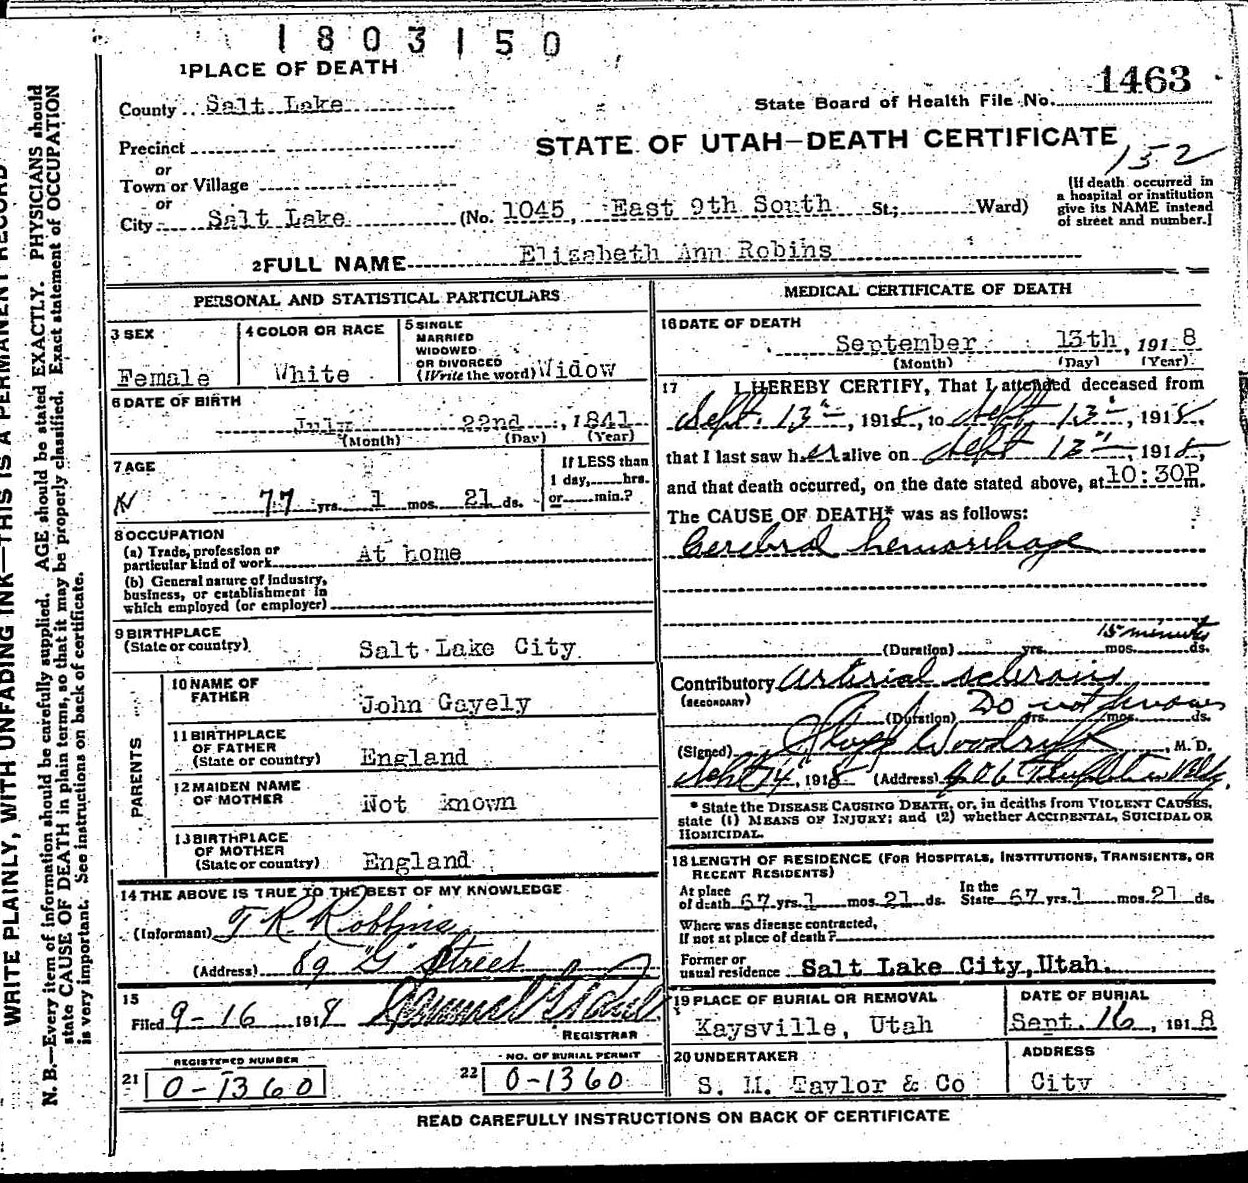 1803150
1 PLACE OF DEATH
1463
County Salt Lake
State Board of Health File No.
Precinct
STATE OF UTAH—DEATH CERTIFICATE
152
or
Town or Village
or
City Salt Lake (No. 1045, East 9th South St.; Ward)
[If death occurred in
a hospital or institution
give its NAME instead
of street and number.]
2 FULL NAME Elizabeth Ann Robins
PERSONAL AND STATISTICAL PARTICULARS
3 SEX
Female
4 COLOR OR RACE
White
5 SINGLE
MARRIED
WIDOWED
OR DIVORCED
(Write the word) Widow
6 DATE OF BIRTH
July 22nd, 1841
(Month) (Day) (Year)
7 AGE
77 yrs. 1 mos. 21 ds.
If LESS than
1 day, hrs.
or min.?
8 OCCUPATION
(a) Trade, profession or
particular kind of work At home
(b) General nature of Industry,
business, or establishment in
which employed (or employer)
9 BIRTHPLACE
(State or country) Salt Lake City
PARENTS
10 NAME OF
FATHER John Gayely
11 BIRTHPLACE
OF FATHER
(State or country) England
12 MAIDEN NAME
OF MOTHER Not known
13 BIRTHPLACE
OF MOTHER
(State or country) England
14 THE ABOVE IS TRUE TO THE BEST OF MY KNOWLEDGE
(Informant) T R Robbins
(Address) 89 "G" Street
15
Filed 9-16 1918
REGISTRAR
REGISTERED NUMBER
21 0-1360
NO. OF BURIAL PERMIT
22 0-1360
MEDICAL CERTIFICATE OF DEATH
16 DATE OF DEATH
September 13th, 1918
(Month) (Day) (Year)
17 I HEREBY CERTIFY, That I attended deceased from
Sept. 13th, 1918, to Sept 13th, 1918,
that I last saw her alive on Sept 13", 1918,
and that death occurred, on the date stated above, at 10:30P m.
The CAUSE OF DEATH* was as follows:
Cerebral hemorrhage
15 minutes
(Duration) yrs. mos. ds.
Contributory Arterial sclerosis
(SECONDARY)
Do not know
(Duration) yrs. mos. ds.
(Signed) Woodruff, M. D.
Sept 14", 1918 (Address) 406 Templeton Bldg.
* State the DISEASE CAUSING DEATH, or, in deaths from VIOLENT CAUSES,
state (1) MEANS OF INJURY; and (2) whether ACCIDENTAL, SUICIDAL OR
HOMICIDAL.
18 LENGTH OF RESIDENCE (FOR HOSPITALS, INSTITUTIONS, TRANSIENTS, OR
RECENT RESIDENTS)
At place In the
of death 67 yrs. 1 mos. 21 ds. State 67 yrs. 1 mos. 21 ds.
Where was disease contracted,
If not at place of death?
Former or
usual residence Salt Lake City, Utah.
19 PLACE OF BURIAL OR REMOVAL
Kaysville, Utah
DATE OF BURIAL
Sept. 16, 1918
20 UNDERTAKER
S. M. Taylor & Co
ADDRESS
City
READ CAREFULLY INSTRUCTIONS ON BACK OF CERTIFICATE
WRITE PLAINLY, WITH UNFADING INK—THIS IS A PERMANENT RECORD
N. B.—Every item of information should be carefully supplied. AGE should be stated EXACTLY. PHYSICIANS should
state CAUSE OF DEATH in plain terms, so that it may be properly classified. Exact statement of OCCUPATION
is very important. See instructions on back of certificate.